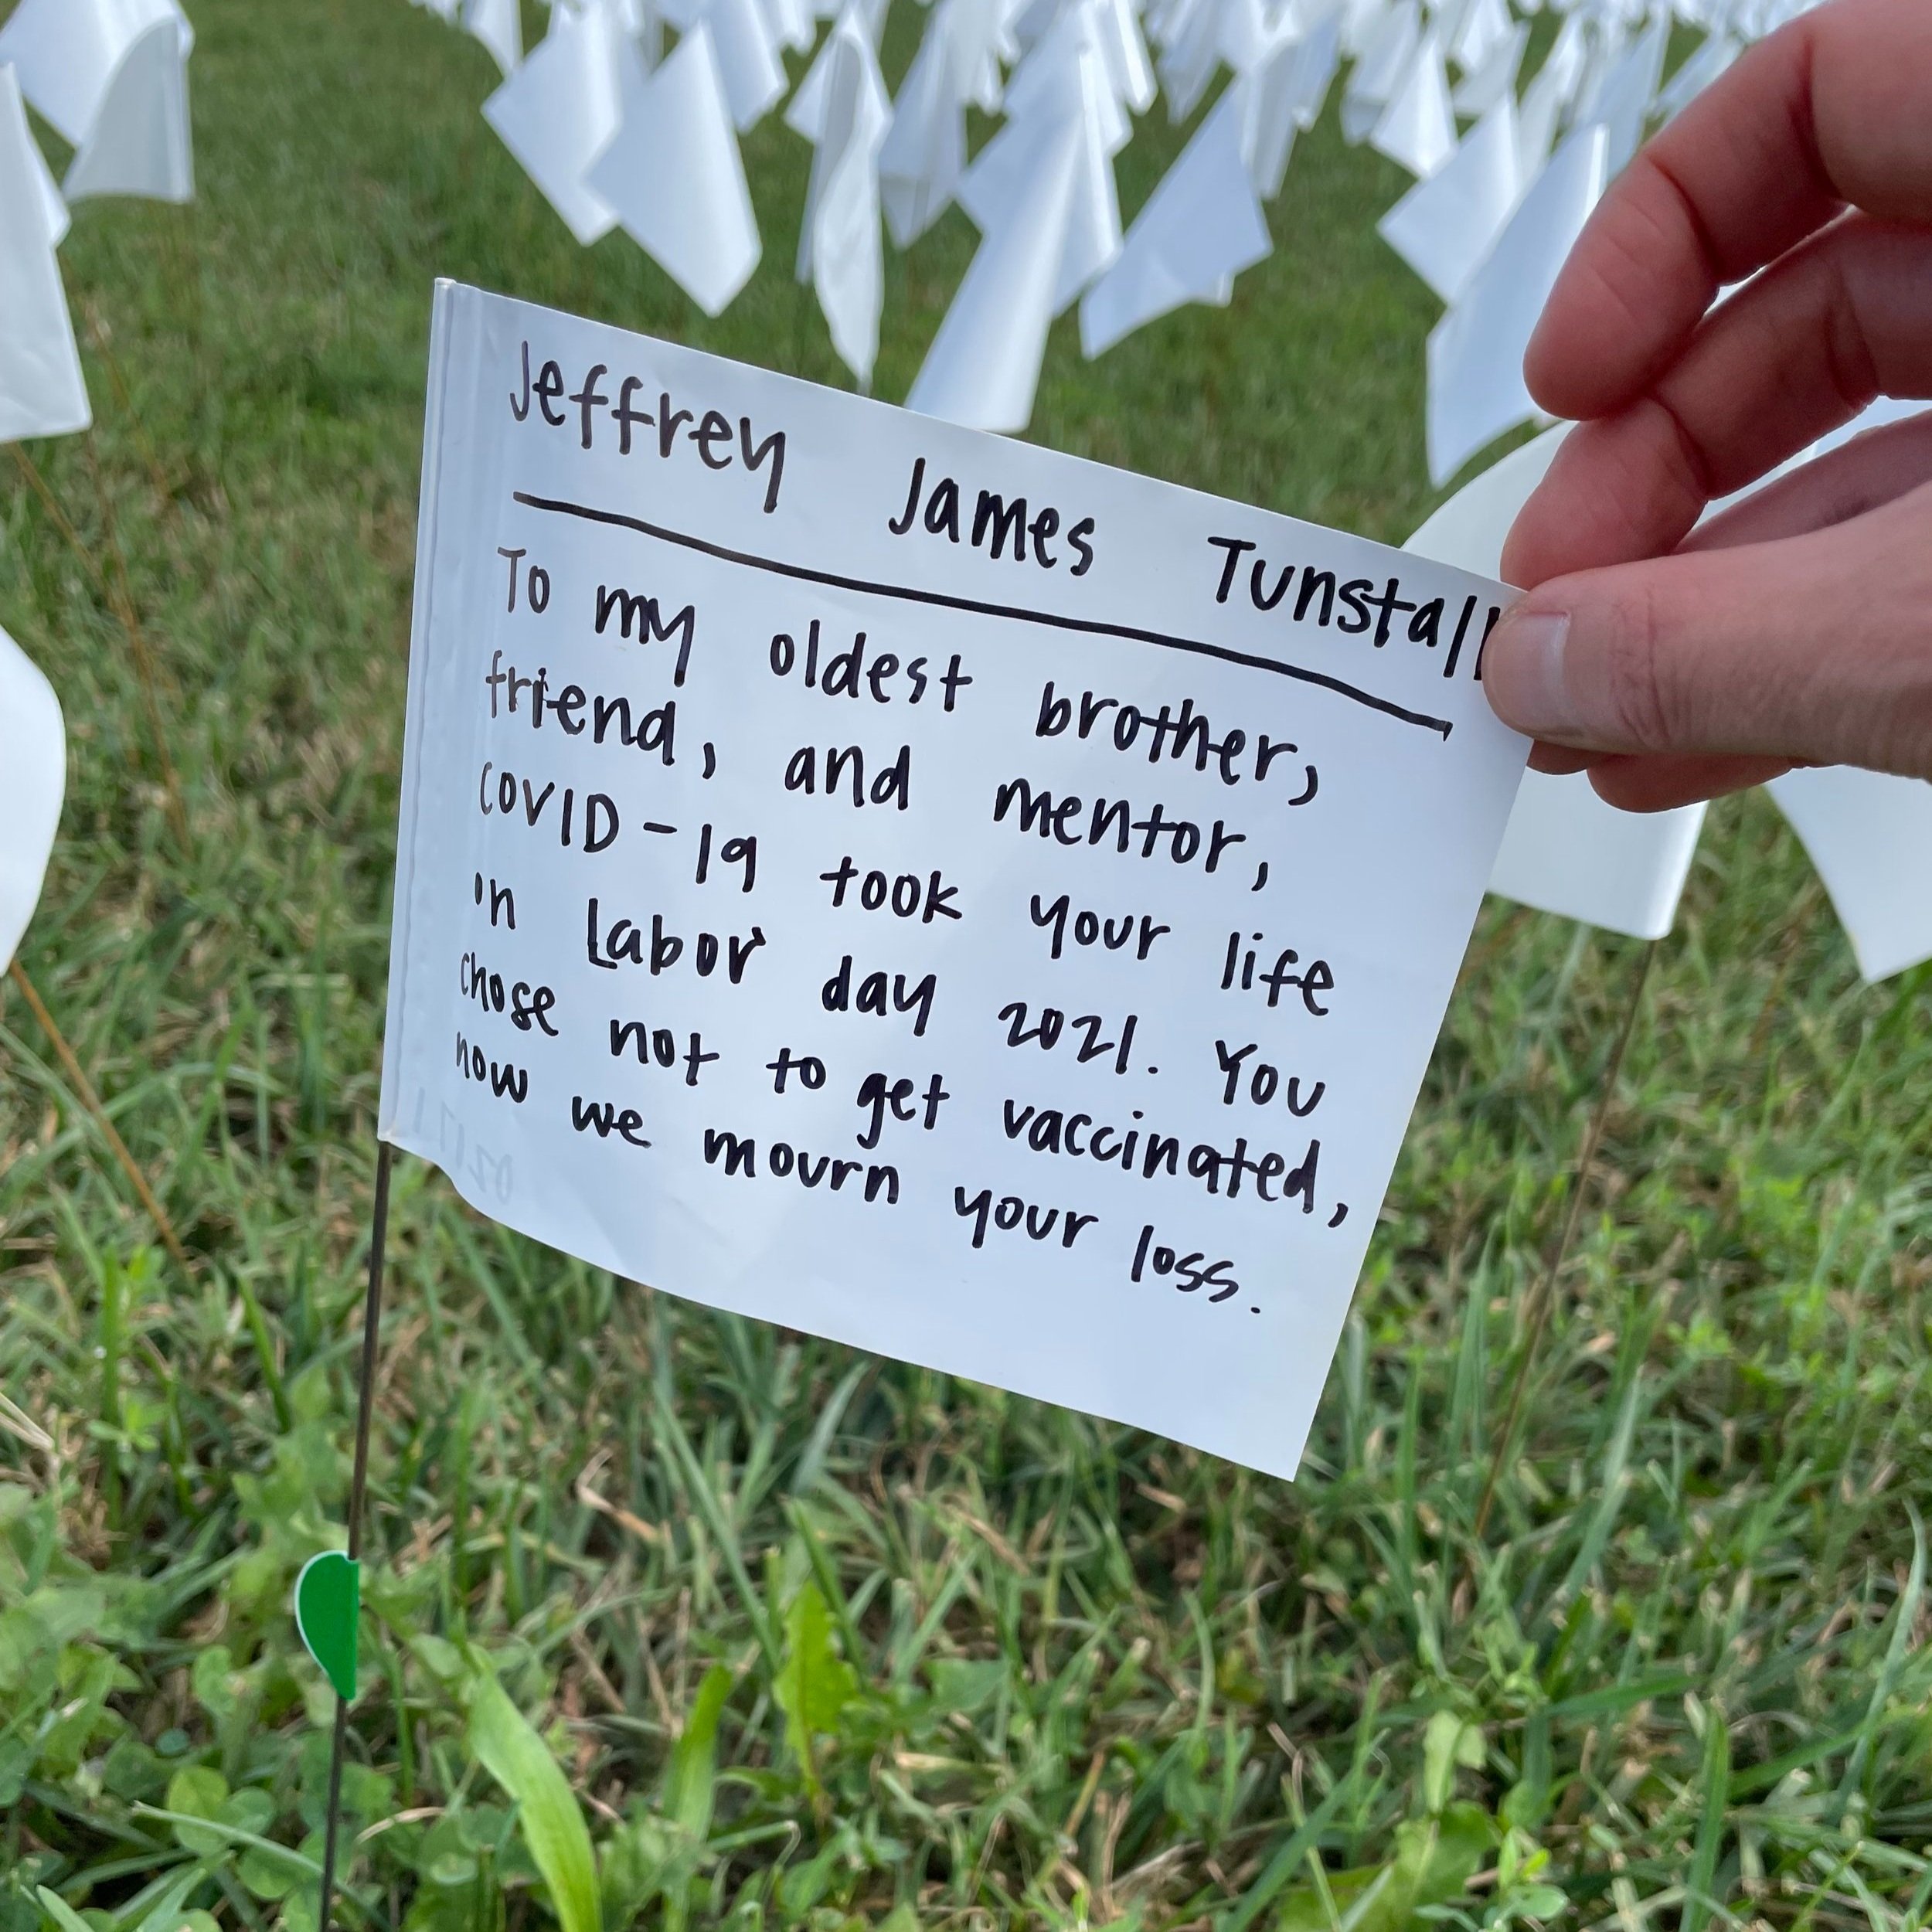 Jeffrey James Tunstall
To my oldest brother,
friend, and mentor,
COVID-19 took your life
on Labor day 2021. You
chose not to get vaccinated,
now we mourn your loss.